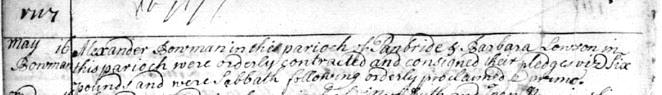 1717
May 16 Alexander Bowman in this parioch of Panbride & Barbara Lowson in
Bowman this parioch were orderly contracted and consigned their pledges vizd six
pounds and were Sabbath following orderly proclaimed p primo.